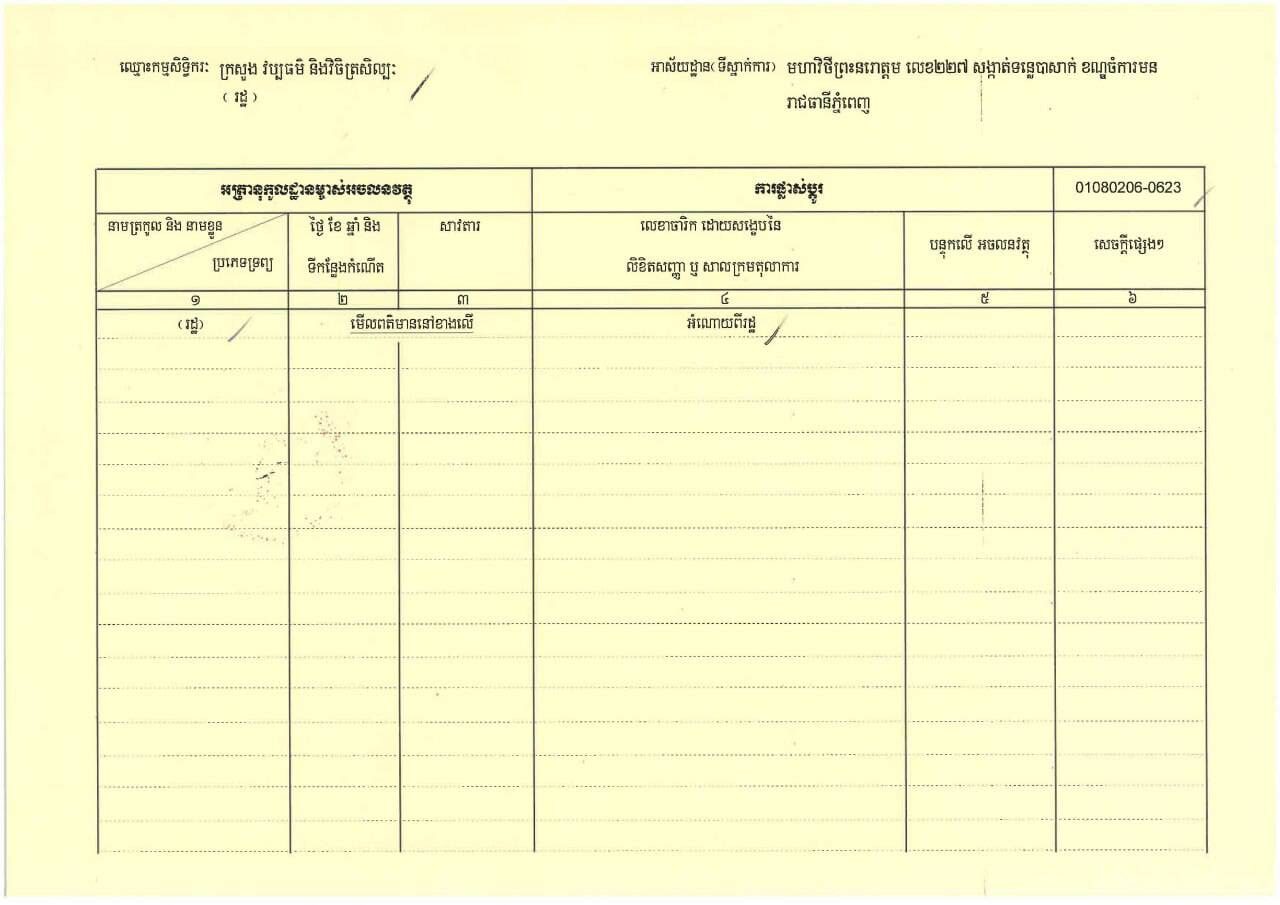 ឈ្មោះកម្មសិទ្ធិករៈ ក្រសួង វប្បធម៌ និងវិចិត្រសិល្បៈ
( រដ្ឋ )
អាស័យដ្ឋាន(ទីស្នាក់ការ) មហាវិថីព្រះនរោត្តម លេខ២២៧ សង្កាត់ទន្លេបាសាក់ ខណ្ឌចំការមន
រាជធានីភ្នំពេញ
អត្រានុកូលដ្ឋានម្ចាស់អចលនវត្ថុ
ការផ្លាស់ប្តូរ
01080206-0623
នាមត្រកូល និង នាមខ្លួន
ប្រភេទទ្រព្យ
ថ្ងៃ ខែ ឆ្នាំ និង
ទីកន្លែងកំណើត
សាវតារ
លេខាចារិក ដោយសង្ខេបនៃ
លិខិតសញ្ញា ឬ សាលក្រមតុលាការ
បន្ទុកលើ អចលនវត្ថុ
សេចក្តីផ្សេងៗ
១
២
៣
៤
៥
៦
(រដ្ឋ)
មើលពត៌មាននៅខាងលើ
អំណោយពីរដ្ឋ